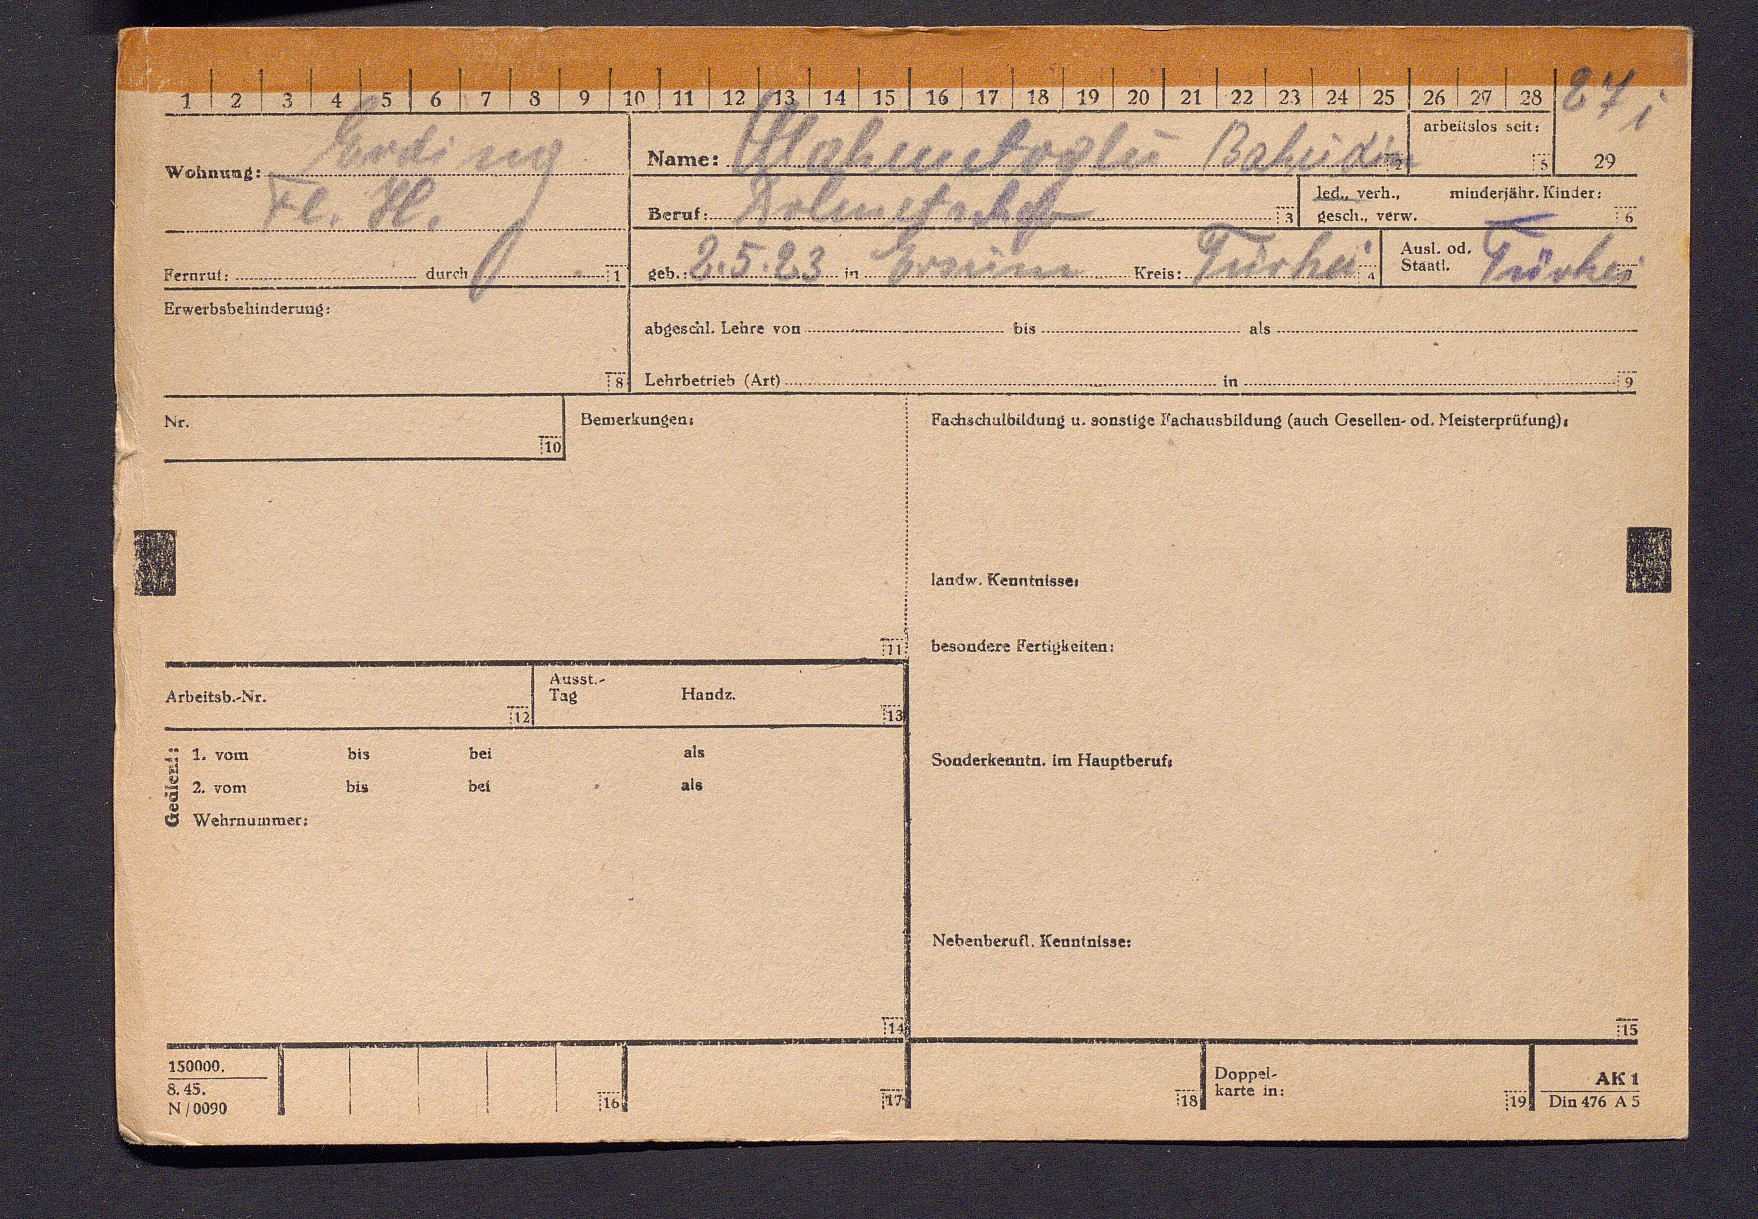 1 2 3 4 5 6 7 8 9 10 11 12 13 14 15 16 17 18 19 20 21 22 23 24 25 26 27 28 27 i
Wohnung: Erding
Fl. H.
Fernruf: durch 1
Name: Bahudin 2
arbeitslos seit: 5
29
Beruf: 3
led., verh., minderjähr. Kinder:
gesch., verw. 6
geb.: 2.5.23 in Kreis: Türkei 4
Ausl. od. Türkei
Staatl.
Erwerbsbehinderung:
8
abgeschl. Lehre von bis als
Lehrbetrieb (Art) in 9
Nr.
10
Bemerkungen:
11
Fachschulbildung u. sonstige Fachausbildung (auch Gesellen- od. Meisterprüfung):
landw. Kenntnisse:
besondere Fertigkeiten:
Sonderkenntn. im Hauptberuf:
Nebenberufl. Kenntnisse:
15
Arbeitsb.-Nr.
12
Ausst.-
Tag Handz.
13
Gedient:
1. vom bis bei als
2. vom bis bei als
Wehrnummer:
14
150000.
8. 45.
N/0090
16
17
18
Doppel-
karte in:
19
AK 1
Din 476 A 5